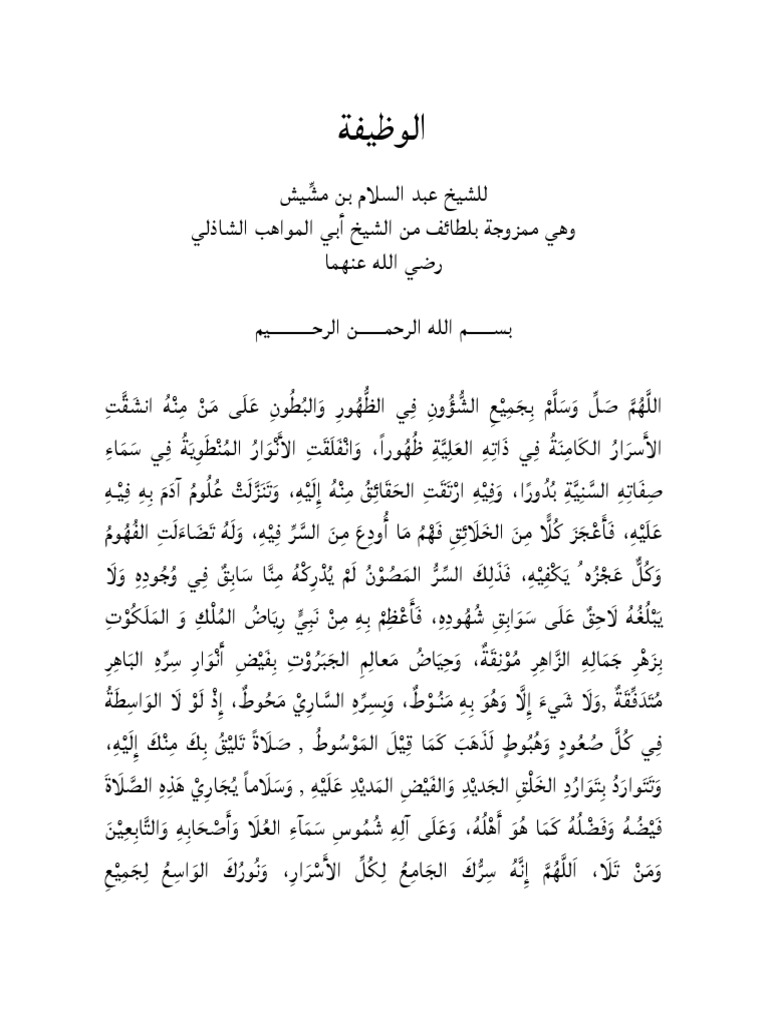 الوظيفة
للشيخ عبد السلام بن مشِّيش
وهي ممزوجة بلطائف من الشيخ أبي المواهب الشاذلي
رضي الله عنهما
بســـم الله الرحمـــن الرحـــــيم
اللَّهُمَّ صَلِّ وَسَلَّمْ بِجَمِيْعِ الشُّؤُونِ فِي الظُّهُورِ وَالبُطُونِ عَلَى مَنْ مِنْهُ انشَقَّتِ
الأَسرَارُ الكَامِنَةُ فِي ذَاتِهِ العَلِيَّةِ ظُهُوراً، وَانْفَلَقَتِ الأَنْوَارُ المُنْطَوِيَةُ فِي سَمَاءِ
صِفَاتِهِ السَّنِيَّةِ بُدُورًا، وَفِيْهِ ارْتَقَتِ الحَقَائِقُ مِنْهُ إِلَيْهِ، وَتَنَزَّلَتْ عُلُومُ آدَمَ بِهِ فِيْـهِ
عَلَيْهِ، فَأَعْجَزَ كُلًّا مِنَ الخَلَائِقِ فَهْمُ مَا أُودِعَ مِنَ السَّرِّ فِيْهِ، وَلَهُ تَضَاءَلَتِ الفُهُومُ
وَكُلٌّ عَجْزُه ُ يَكْفِيْهِ، فَذَلِكَ السِّرُّ المَصُوْنُ لَمْ يُدْرِكْهُ مِنَّا سَابِقٌ فِي وُجُودِهِ وَلَا
يَبْلُغُهُ لَاحِقٌ عَلَى سَوَابِقِ شُهُودِهِ، فَأَعْظِمْ بِهِ مِنْ نَبِيٍّ رِيَاضُ المُلْكِ وَ المَلَكُوْتِ
بِزَهْرِ جَمَالِهِ الزَّاهِرِ مُوْنِقَةٌ، وَحِيَاضُ مَعالِمِ الجَبَرُوْتِ بِفَيْضِ أَنْوَارِ سِرِّهِ البَاهِرِ
مُتَدَفِّقَةٌ ,وَلَا شَيءَ إِلَّا وَهُوَ بِهِ مَنُـوْطٌ، وَبِسِرِّهِ السَّارِيْ مَحُوطٌ، إِذْ لَوْ لَا الوَاسِطَةُ
فِي كُلَّ صُعُودٍ وَهُبُوطٍ لَذَهَبَ كَمَا قِيْلَ المَوْسُوطُ , صَلَاةً تَلِيْقُ بِكَ مِنْكَ إِلَيْهِ،
وَتَتَوارَدُ بِتَوَارُدِ الخَلْقِ الجَديْدِ وَالفَيْضِ المَديْدِ عَلَيْهِ , وَسَلَاماً يُجَارِيْ هَذِهِ الصَّلَاةَ
فَيْضُهُ وَفَضْلُهُ كَمَا هُوَ أَهْلُهُ، وَعَلَى آلِهِ شُمُوسِ سَمَآءِ العُلَا وَأَصْحَابِهِ وَالتَّابِعِيْنَ
وَمَنْ تَلَا، اَللَّهُمَّ إِنَّهُ سِرُّكَ الجَامِعُ لِكُلِّ الأَسْرَارِ، وَنُورُكَ الوَاسِعُ لِجَمِيْعِ